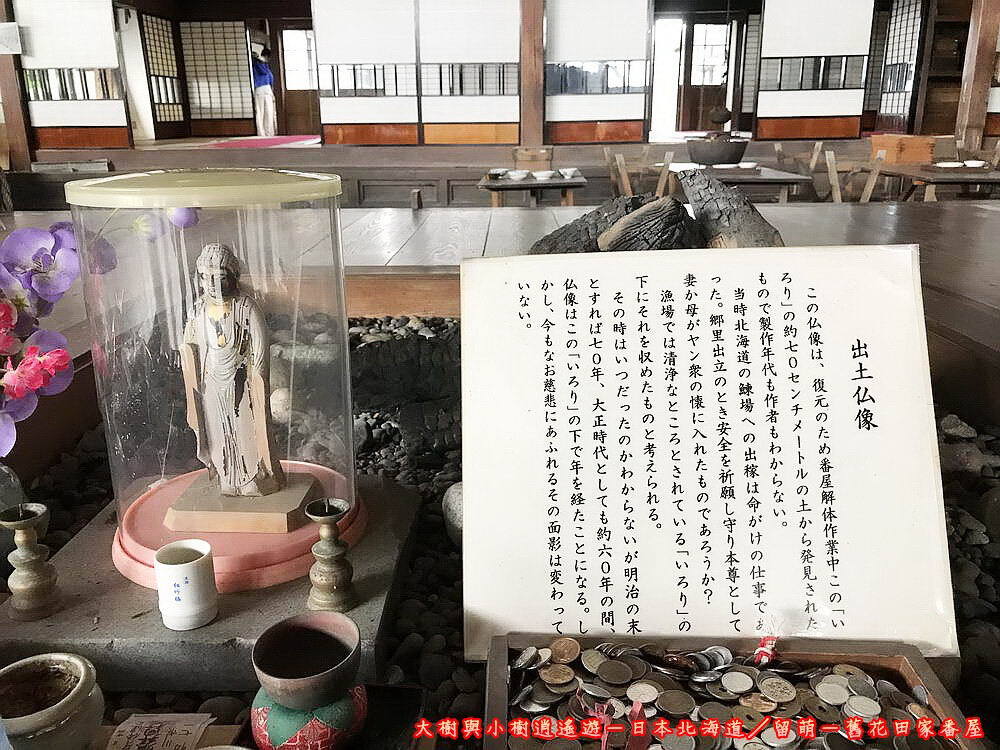 出土仏像
この仏像は、復元のため番屋解体作業中この「い
ろり」の約七０センチメートルの土から発見された
もので製作年代も作者もわからない。
当時北海道の鰊場への出稼は命がけの仕事であ
った。郷里出立のとき安全を祈願し守り本尊として
妻か母がヤン衆の懐に入れたものであろうか？
漁場では清浄なところとされている「いろり」の
下にそれを収めたものと考えられる。
その時はいつだったのかわからないが明治の末
とすれば七０年、大正時代としても約六０年の間、
仏像はこの「いろり」の下で年を経たことになる。し
かし、今もなお慈悲にあふれるその面影は変わって
いない。
大樹與小樹逍遙遊－日本北海道／留萌－舊花田家番屋